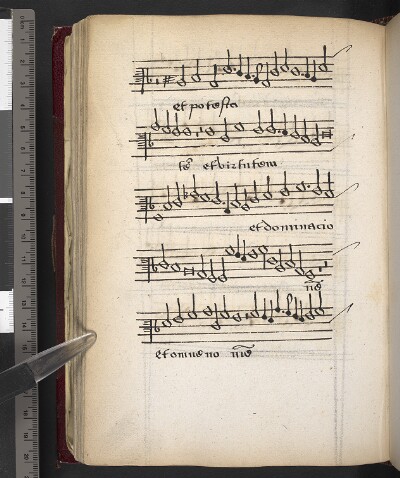 et potesta
tē et virtutem
et dominacio
nē
et omne no mē